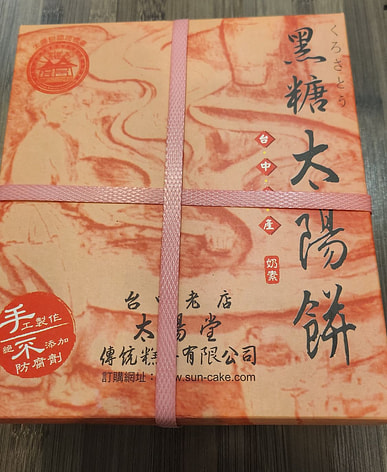 くろさとう
黑糖太陽餅
台中 產
奶素
台中老店
太陽堂
傳統糕 有限公司
訂購網址: www.sun-cake.com
手工製作
絕不添加
防腐劑